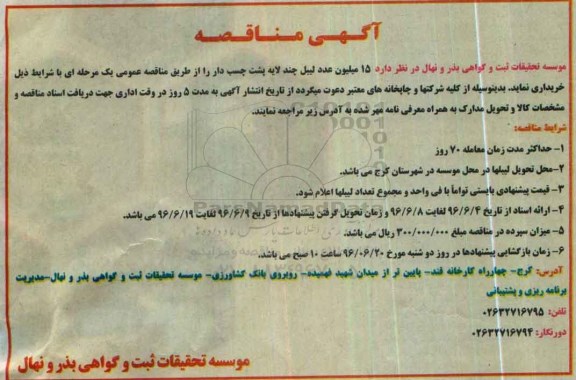 آگهی مناقصه
موسسه تحقیقات ثبت و گواهی بذر و نهال در نظر دارد ۱۵ میلیون عدد لیبل چند لایه پشت چسب دار را از طریق مناقصه عمومی یک مرحله ای با شرایط ذیل
خریداری نماید. بدینوسیله از کلیه شرکتها و چاپخانه های معتبر دعوت میگردد از تاریخ انتشار آگهی به مدت ۵ روز در وقت اداری جهت دریافت اسناد مناقصه و
مشخصات کالا و تحویل مدارک به همراه معرفی نامه مهر شده به آدرس زیر مراجعه نمایند.
شرایط مناقصه:
۱- حداکثر مدت زمان معامله ۷۰ روز
۲-محل تحویل لیبلها در محل موسسه در شهرستان کرج می باشد.
۳- قیمت پیشنهادی بایستی تواماً با فی واحد و مجموع تعداد لیبلها اعلام شود.
۴- ارائه اسناد از تاریخ ۹۶/۶/۴ لغایت ۹۶/۶/۸ و زمان تحویل گرفتن پیشنهادها از تاریخ ۹۶/۶/۹ لغایت ۹۶/۶/۱۹ می باشد.
۵- میزان سپرده در مناقصه مبلغ ۳۰۰/۰۰۰/۰۰۰ ریال می باشد.
۶- زمان بازگشایی پیشنهادها در روز دو شنبه مورخ ۹۶/۰۶/۲۰ ساعت ۱۰ صبح می باشد.
آدرس: کرج- چهارراه کارخانه قند- پایین تر از میدان شهید فهمیده- روبروی بانک کشاورزی- موسسه تحقیقات ثبت و گواهی بذر و نهال-مدیریت
برنامه ریزی و پشتیبانی
تلفن: ۰۲۶۳۲۷۱۶۷۹۵
دورنگار: ۰۲۶۳۲۷۱۶۷۹۴
موسسه تحقیقات ثبت و گواهی بذر و نهال
ParsNamadData